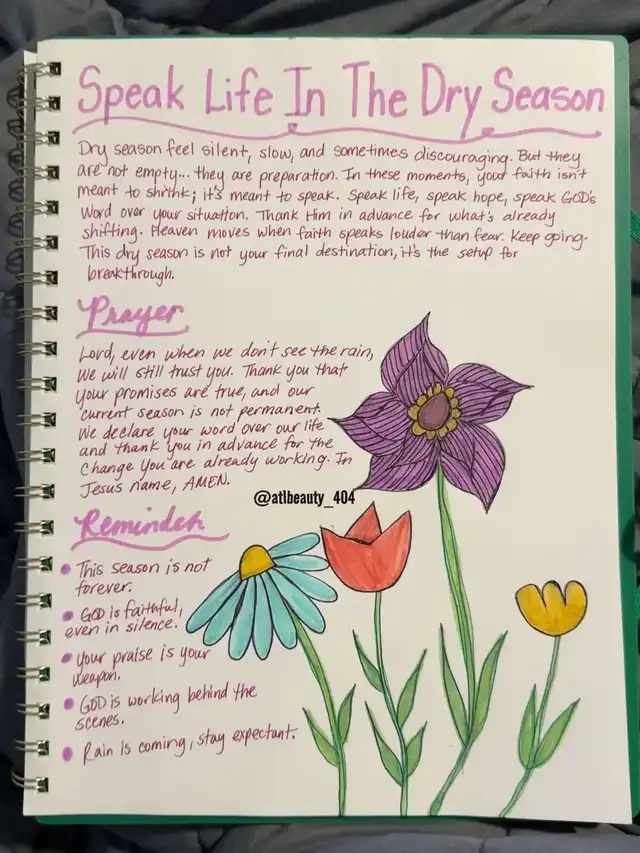 Speak Life In The Dry Season
Dry season feel silent, slow, and sometimes discouraging. But they
are not empty... they are preparation. In these moments, your faith isn't
meant to shrink; it's meant to speak. Speak life, speak hope, speak GOD's
Word over your situation. Thank Him in advance for what's already
shifting. Heaven moves when faith speaks louder than fear. Keep going.
This dry season is not your final destination, it's the setup for
breakthrough.
Prayer
Lord, even when we don't see the rain,
We will still trust you. Thank you that
your promises are true, and our
current season is not permanent.
We declare your word over our life
and thank you in advance for the
change you are already working. In
Jesus name, AMEN.
@atlbeauty_404
Reminder
• This season is not
forever.
• GOD is faithful,
even in silence.
• Your praise is your
weapon.
• GOD is working behind the
scenes.
• Rain is coming, stay expectant.